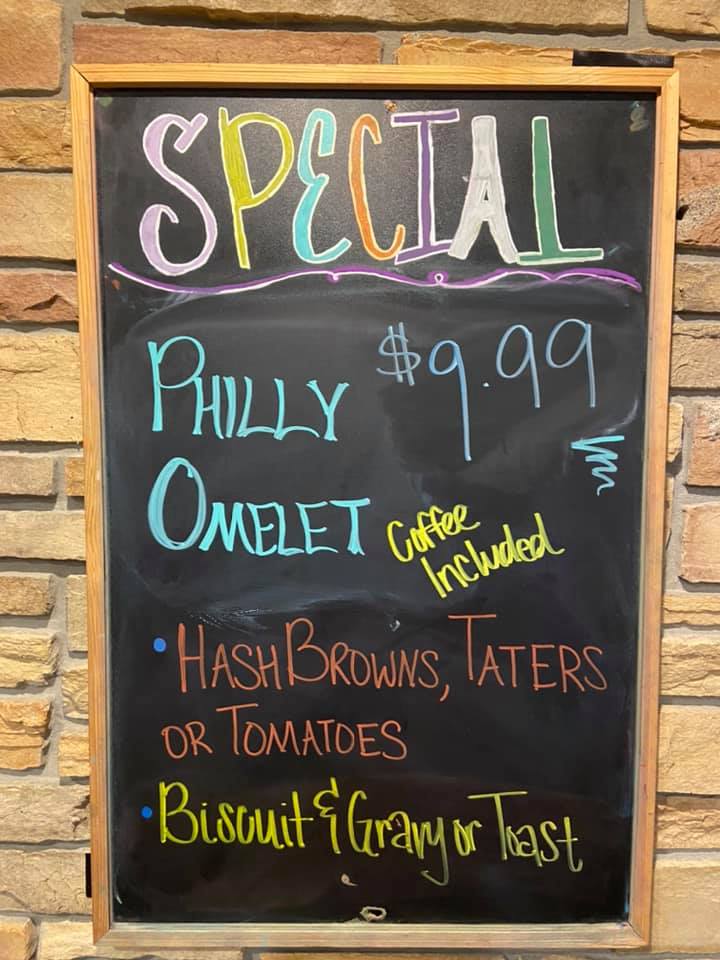 SPECIAL
PHILLY $9.99
OMELET Coffee
Included
• HASH BROWNS, TATERS
OR TOMATOES
• Biscuit & Gravy or Toast